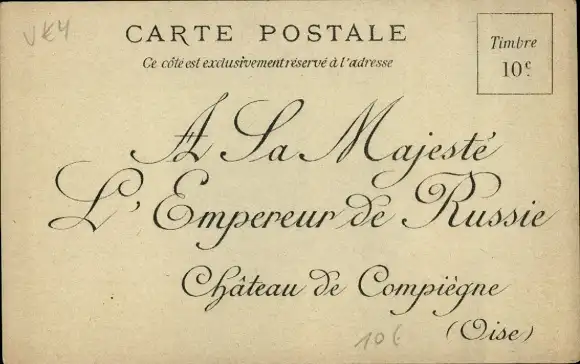 VK4
CARTE POSTALE
Ce côté est exclusivement réservé à l'adresse
Timbre
10c.
A Sa Majesté
L'Empereur de Russie
Château de Compiègne
(Oise)
10€